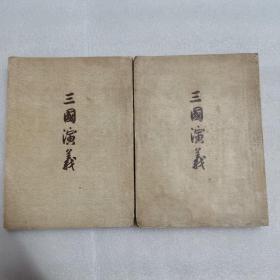 三國演義
三國演義